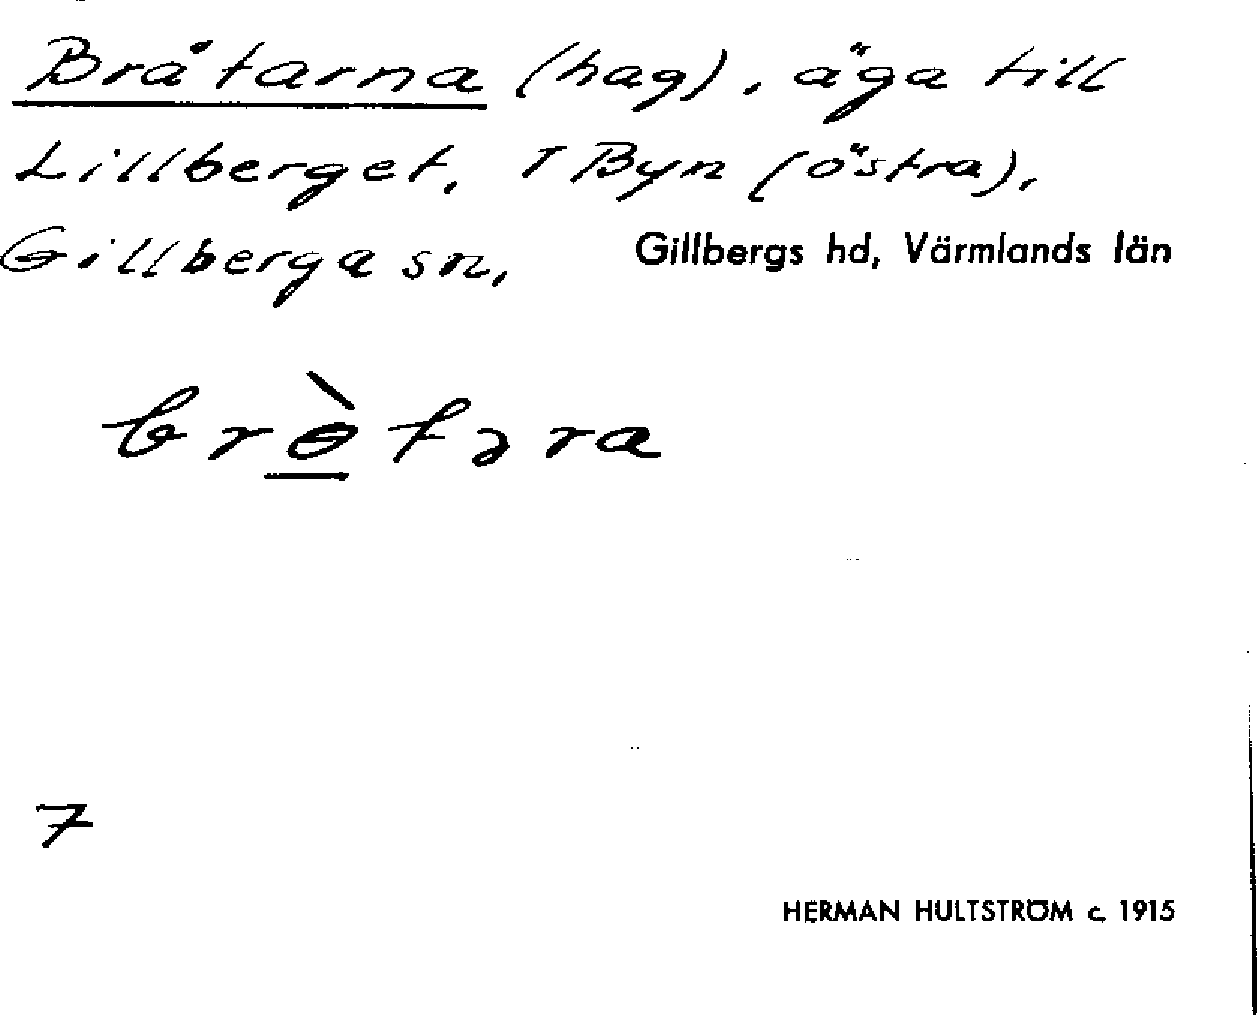 Bråtarna (hag), äga till
Lillberget, T Byn (östra),
Gillberga sn, Gillbergs hd, Värmlands län
brɵ̀təra
7
HERMAN HULTSTRÖM c 1915